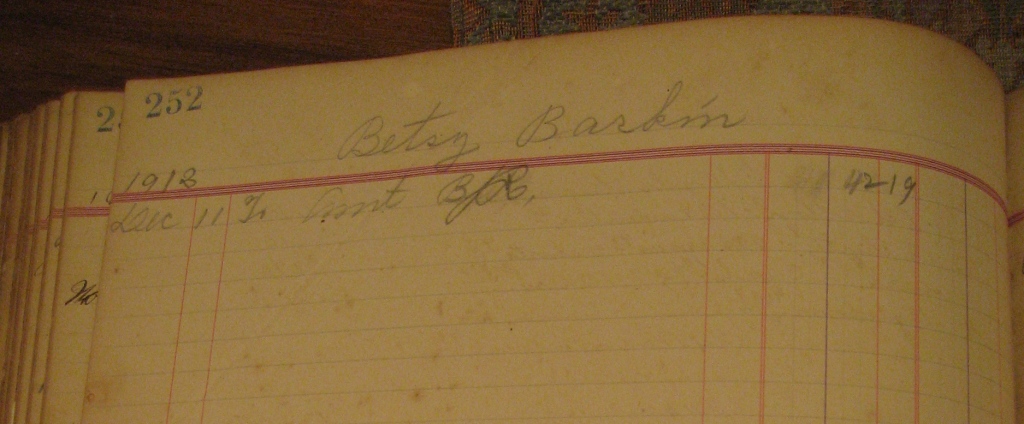 252
Betsy Barkin
1913
Dec 11 To Amt
42 19
2